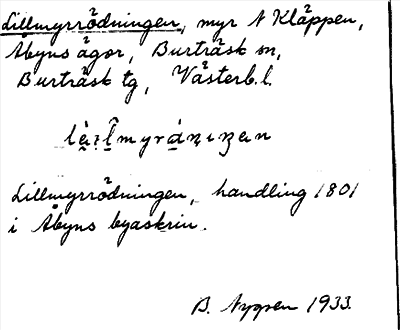 Lillmyrrödningen, myr N Kläppen,
Åbyns ägor, Burträsk sn,
Burträsk tg, Västerb.l.
Lillmyrrödningen, handling 1801
i Åbyns byaskrin.
B. Nygren 1933.